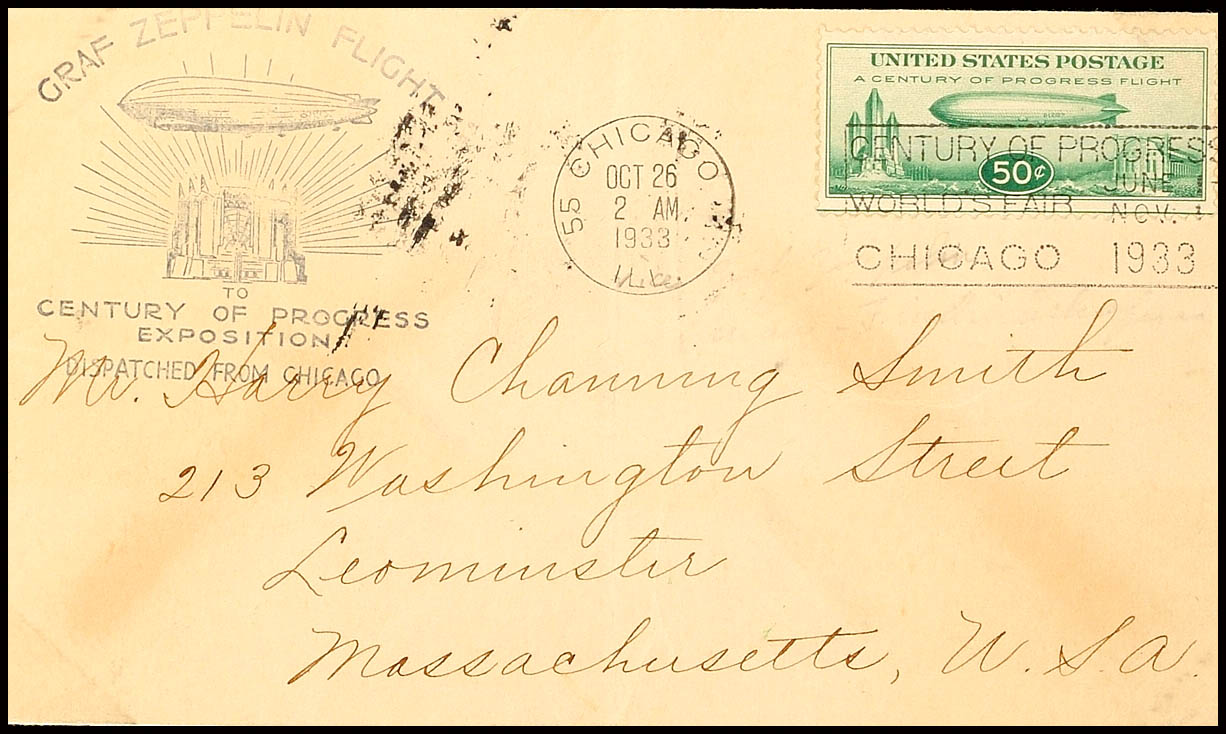 GRAF ZEPPELIN FLIGHT
TO
CENTURY OF PROGRESS
EXPOSITION
DISPATCHED FROM CHICAGO
55 CHICAGO
OCT 26
2 AM
1933
ILL.
UNITED STATES POSTAGE
A CENTURY OF PROGRESS FLIGHT
50¢
CENTURY OF PROGRESS
JUNE 1
WORLD'S FAIR NOV. 1
CHICAGO 1933
Mr. Harry Channing Smith
213 Washington Street
Leominster
Massachusetts, U.S.A.